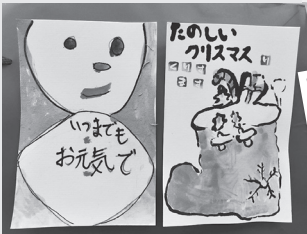 いつまでも
お元気で
たのしい
クリスマス